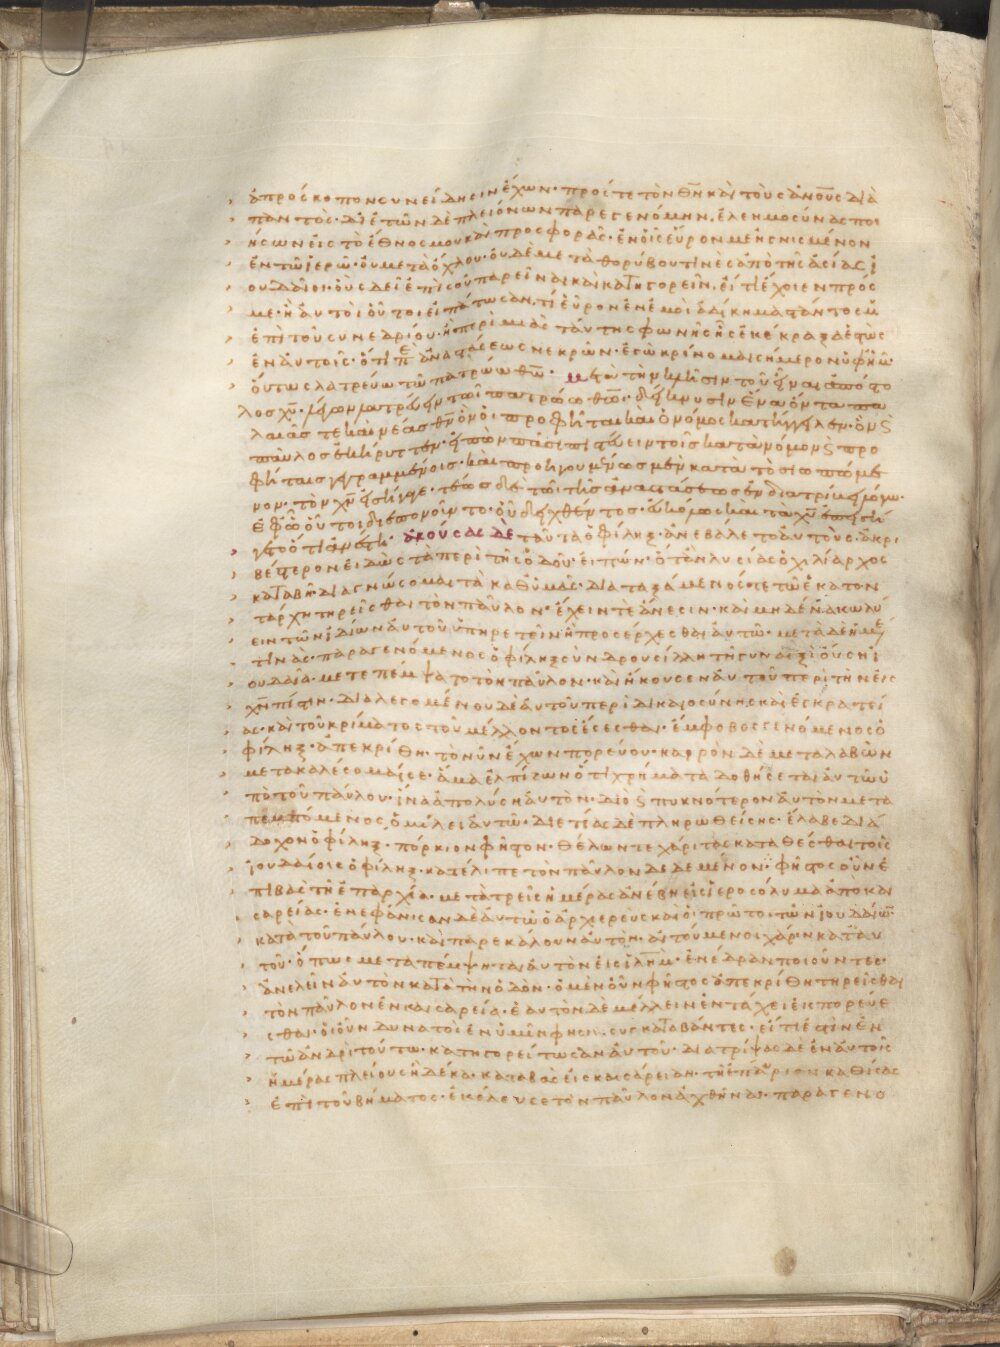 ἀπρόσκοπον συνείδησιν ἔχων· πρός τε τὸν θν̄ καὶ τοὺς ἀνο̄υς διὰ
παντὸς· δι ἐτῶν δὲ πλειόνων παρεγενόμην, ἐλεημοσύνας ποι
ήσων εἰς τὸ ἔθνος μου καὶ προσφοράς· ἐν οἷς εὗρον με ἡγνισμένον
ἐν τῶ ἱερῶ· οὐ μετὰ ὄχλου· οὐδὲ μετὰ θορύβου τινὲς ἀπὸ τῆς ἀσίας ἰ
ουδαῖοι· οὓς δεῖ ἐπὶ σοῦ παρεῖναι καὶ κατηγορεῖν, εἴ τι ἔχοιεν πρός
με· ἢ αὐτοὶ οὗτοι εἰπάτωσαν, τί εὗρον ἐν ἐμοὶ ἀδίκημα στάντος μ
ἐπὶ τοῦ συνεδρίου· ἢ περὶ μιᾶς ταύτης φωνῆς ἧς ἐκέκραξα ἑστὼς
ἐν αὐτοῖς· ὅτι πε ἀναστάσεως νεκρῶν· ἐγὼ κρίνομαι σήμερον ὑφ ἡμῶ
οὕτως λατρεύω τῶ πατρώω θῶ· μετὰ τὴν μίμησιν τοῦ εἶναι ἀπόστο
λος χῡ· λατρεύειν τῶι πατρώω θῶ· δείκνυσιν ἕνα ὄντα πα
λαιᾶς τε καὶ νέας θν̄ ὃν οἱ προφῆται καὶ ὁ νόμος κατήγγελεν· ὃν ς
παῦλος ἐκήρυττεν· εἰπὼν πᾶσι πιστεύειν τοῖς κατὰ νόμον ς προ
φήταις γεγραμμένοις· καὶ προηγουμένως μὲν κατὰ τὸ σιωπώμε
νον· τὸν χν̄ εἰσήγαγε· τέως δὲ τῶι τῆς ἀναστάσεως ἐνδιατρίβει λόγω·
ἐφ ὧ οὗτοι διεπονοῦντο· οὗ δειχθέντος· εὐκόλως καὶ τὰ χῡ εἰσή
γετο ὅτι ἀνέστη· ἀκούσας δὲ ταῦτα ὁ φίληξ· ἀνεβάλετο αὐτοὺς· ἀκρι
βέστερον εἰδὼς τὰ περὶ τῆς ὁδοῦ· εἰπὼν· ὅταν λυσίας ὁ χιλίαρχος
καταβῆ· διαγνώσομαι τὰ καθ ὑμᾶς· διαταξάμενος τε τῶ ἑκατον
τάρχη τηρεῖσθαι τὸν παῦλον· ἔχειν τε ἄνεσιν· καὶ μηδένα κωλύ
ειν τῶν ἰδίων αὐτοῦ ὑπηρετεῖν ἢ προσέρχεσθαι αὐτῶ· μετὰ δὲ ἡμέ
τινὰς· παραγενόμενος ὁ φίληξ σὺν δρουσίλλη τῆ γυναικὶ οὔση ἰ
ουδαία· μετεπέμψατο τὸν παῦλον· καὶ ἤκουσεν αὐτοῦ περὶ τῆς εἰς
χν̄ πίστεως· διαλεγομένου δὲ αὐτοῦ περὶ δικαιοσύνης καὶ ἐγκρατεί
ας· καὶ τοῦ κρίματος τοῦ μέλλοντος ἔσεσθαι· ἔμφοβος γενόμενος ὁ
φίληξ· ἀπεκρίθη· τὸ νῦν ἔχων πορεύου· καιρὸν δὲ μεταλαβὼν
μετακαλέσομαί σε· ἅμα ἐλπίζων ὅτι χρήματα δοθήσεται αὐτῶ ὑ
πὸ τοῦ παύλου· ἵνα ἀπολύση αὐτὸν· διὸ ς πυκνότερον αὐτὸν μετα
πεμπόμενος, ὁμίλει αὐτῶ· διετίας δὲ πληρωθείσης· ἔλαβε διά
δοχον ὁ φίληξ· πόρκιον φῆστον· θέλων τε χάριτας καταθέσθαι τοῖς
ἰουδαίοις ὁ φίληξ· κατέλιπε τὸν παῦλον δεδεμένον· φῆστος οὖν ἐ
πιβὰς τῆ ἐπαρχία· μετὰ τρεῖς ἡμέρας ἀνέβη εἰς ἱεροσόλυμα ἀπὸ και
σαρείας· ἐνεφάνισαν δὲ αὐτῶ ὁ ἀρχιερεὺς καὶ οἱ πρῶτοι τῶν ἰουδαίων
κατὰ τοῦ παύλου· καὶ παρεκάλουν αὐτὸν· αἰτούμενοι χάριν κατ αυ
τοῦ· ὅπως μεταπέμψηται αὐτὸν εἰς ἰλημ̄· ἐνέδραν ποιοῦντες·
ἀνελεῖν αὐτὸν κατὰ τὴν ὁδὸν· ὁ μὲν οὖν φῆστος ἀπεκρίθη τηρεῖσθαι
τὸν παῦλον ἐν καισαρεία· ἑαυτὸν δὲ μέλλειν ἐν τάχει ἐκπορεύε
σθαι· οἱ οὖν δυνατοὶ ἐν ὑμῖν φησὶ συγκαταβάντες· εἴ τι ἐστὶν ἐν
τῶ ἀνδρὶ τούτω· κατηγορείτωσαν αὐτοῦ· διατρίψας δὲ ἐν αὐτοῖς
ἡμέρας πλείους ἢ δέκα· καταβὰς εἰς καισάρειαν· τῆ ἐπαύριον καθίσας
ἐπὶ τοῦ βήματος· ἐκέλευσε τὸν παῦλον ἀχθῆναι· παραγενο